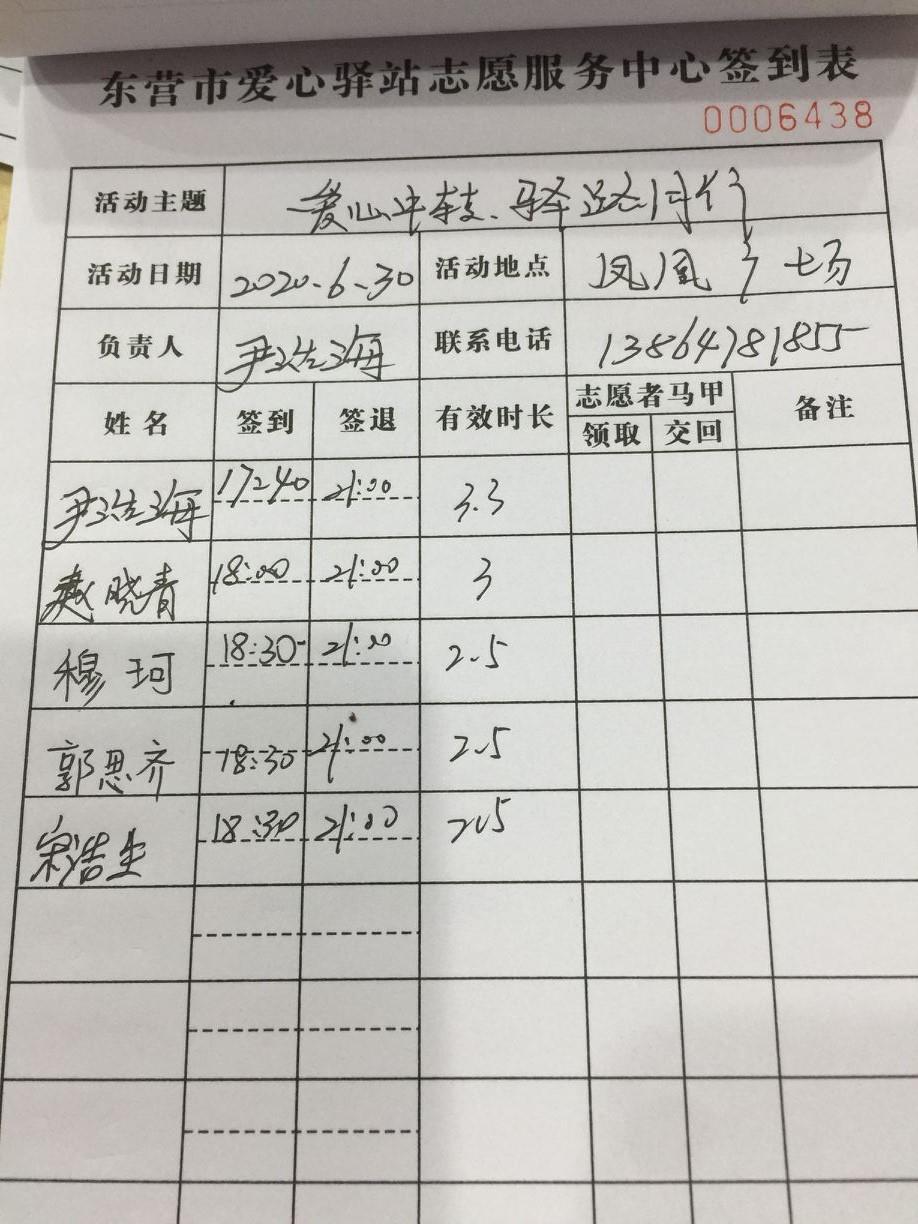 东营市爱心驿站志愿服务中心签到表
0006438
活动主题 爱心中转、驿路同行
活动日期 2020.6.30 活动地点 凤凰广场
负责人 尹浩海 联系电话 13864781855
姓名 签到 签退 有效时长 志愿者马甲 备注
领取 交回
尹浩海 17:40 21:00 3.3
晓青 18:00 21:00 3
穆珂 18:30 21:00 2.5
郭思齐 18:30 21:00 2.5
宋浩生 18:30 21:00 2.5